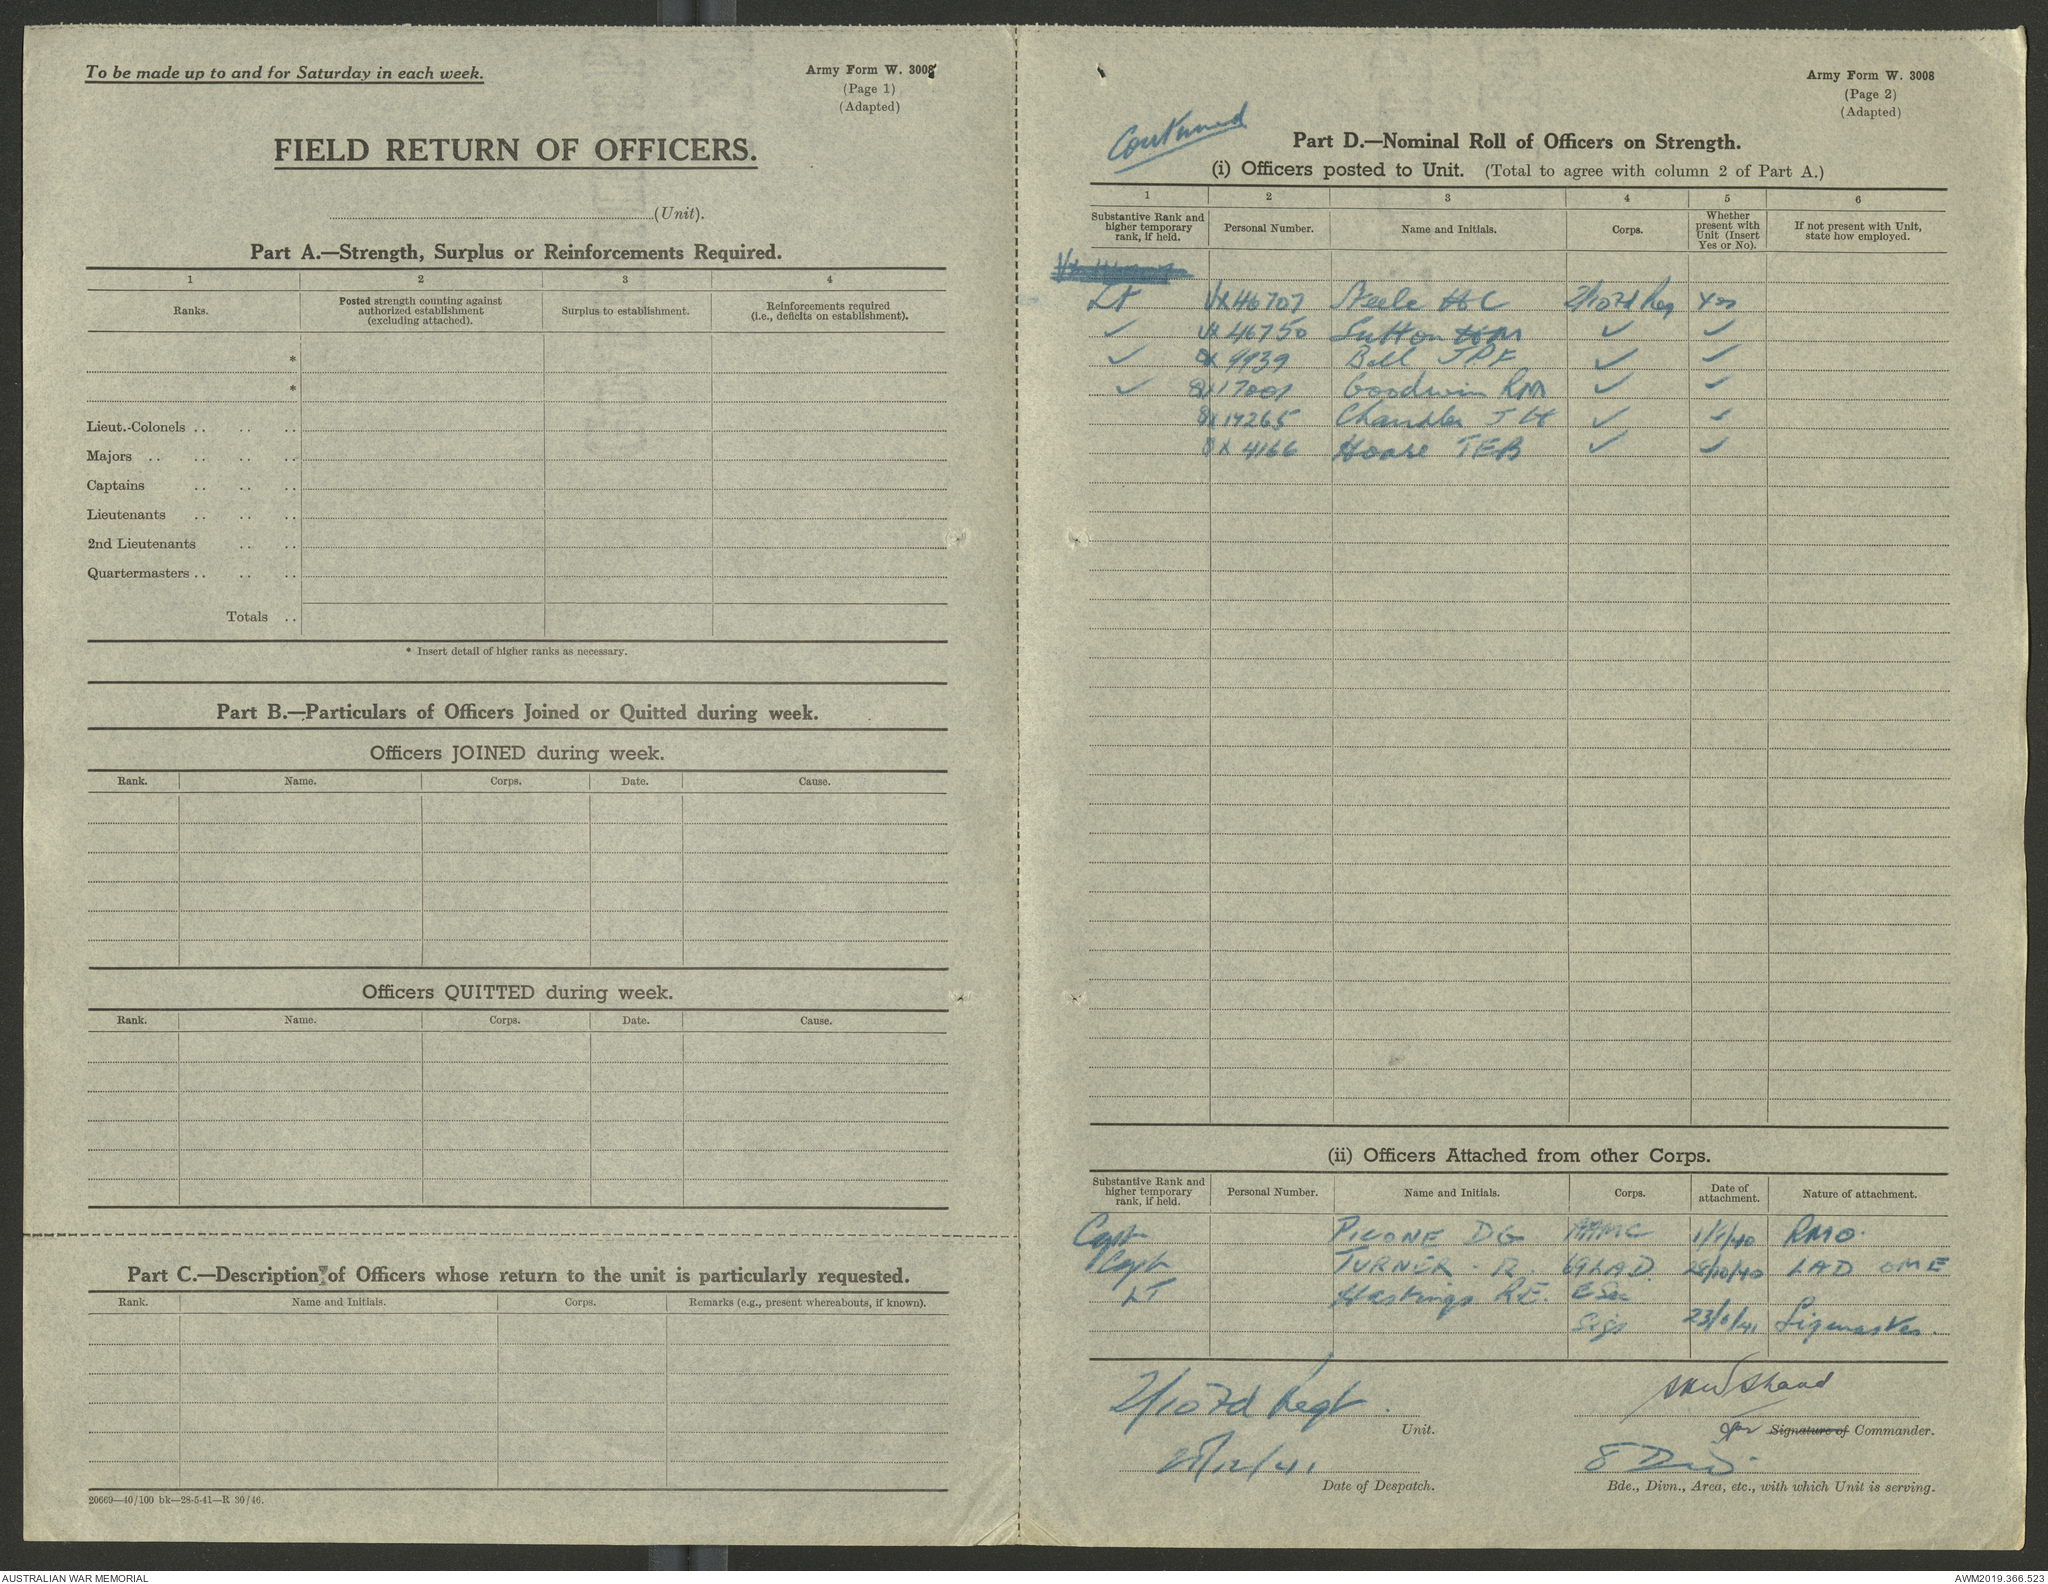 To be made up to and for Saturday in each week.
Army Form W. 3008
(Page 1)
(Adapted)
FIELD RETURN OF OFFICERS.
(Unit).
Part A.—Strength, Surplus or Reinforcements Required.
1 2 3 4
Ranks. Posted strength counting against authorized establishment (excluding attached). Surplus to establishment. Reinforcements required (i.e., deficits on establishment).
*
*
Lieut.-Colonels .. .. ..
Majors .. .. .. ..
Captains .. .. ..
Lieutenants .. .. ..
2nd Lieutenants .. ..
Quartermasters .. .. ..
Totals ..
* Insert detail of higher ranks as necessary.
Part B.—Particulars of Officers Joined or Quitted during week.
Officers JOINED during week.
Rank. Name. Corps. Date. Cause.
Officers QUITTED during week.
Rank. Name. Corps. Date. Cause.
Part C.—Description of Officers whose return to the unit is particularly requested.
Rank. Name and Initials. Corps. Remarks (e.g., present whereabouts, if known).
20669—40/100 bk—28-5-41—R 30/46.
Army Form W. 3008
(Page 2)
(Adapted)
Continued
Part D.—Nominal Roll of Officers on Strength.
(i) Officers posted to Unit. (Total to agree with column 2 of Part A.)
1 2 3 4 5 6
Substantive Rank and higher temporary rank, if held. Personal Number. Name and Initials. Corps. Whether present with Unit (Insert Yes or No). If not present with Unit, state how employed.
Lt VX46707 Steele HC 2/10 Fd Reg Yes
✓ VX46750 Sutton ✓ ✓
✓ QX 9939 Bell JPF ✓ ✓
✓ QX17001 Goodwin RM ✓ ✓
Chandler JH ✓ ✓
4166 Hoare TEB ✓ ✓
(ii) Officers Attached from other Corps.
Substantive Rank and higher temporary rank, if held. Personal Number. Name and Initials. Corps. Date of attachment. Nature of attachment.
Capt PICONE DG AAMC RMO.
Capt TURNER. R. 69LAD. 28/10/40 LAD OME
LT Hastings RE. E Sec
Sigs 23/6/41 Sigmaster.
2/10 Fd Regt.
Unit.
Shand
for Signature of Commander.
/12/41
Date of Despatch.
8 Div.
Bde., Divn., Area, etc., with which Unit is serving.
AUSTRALIAN WAR MEMORIAL
AWM2019.366.523